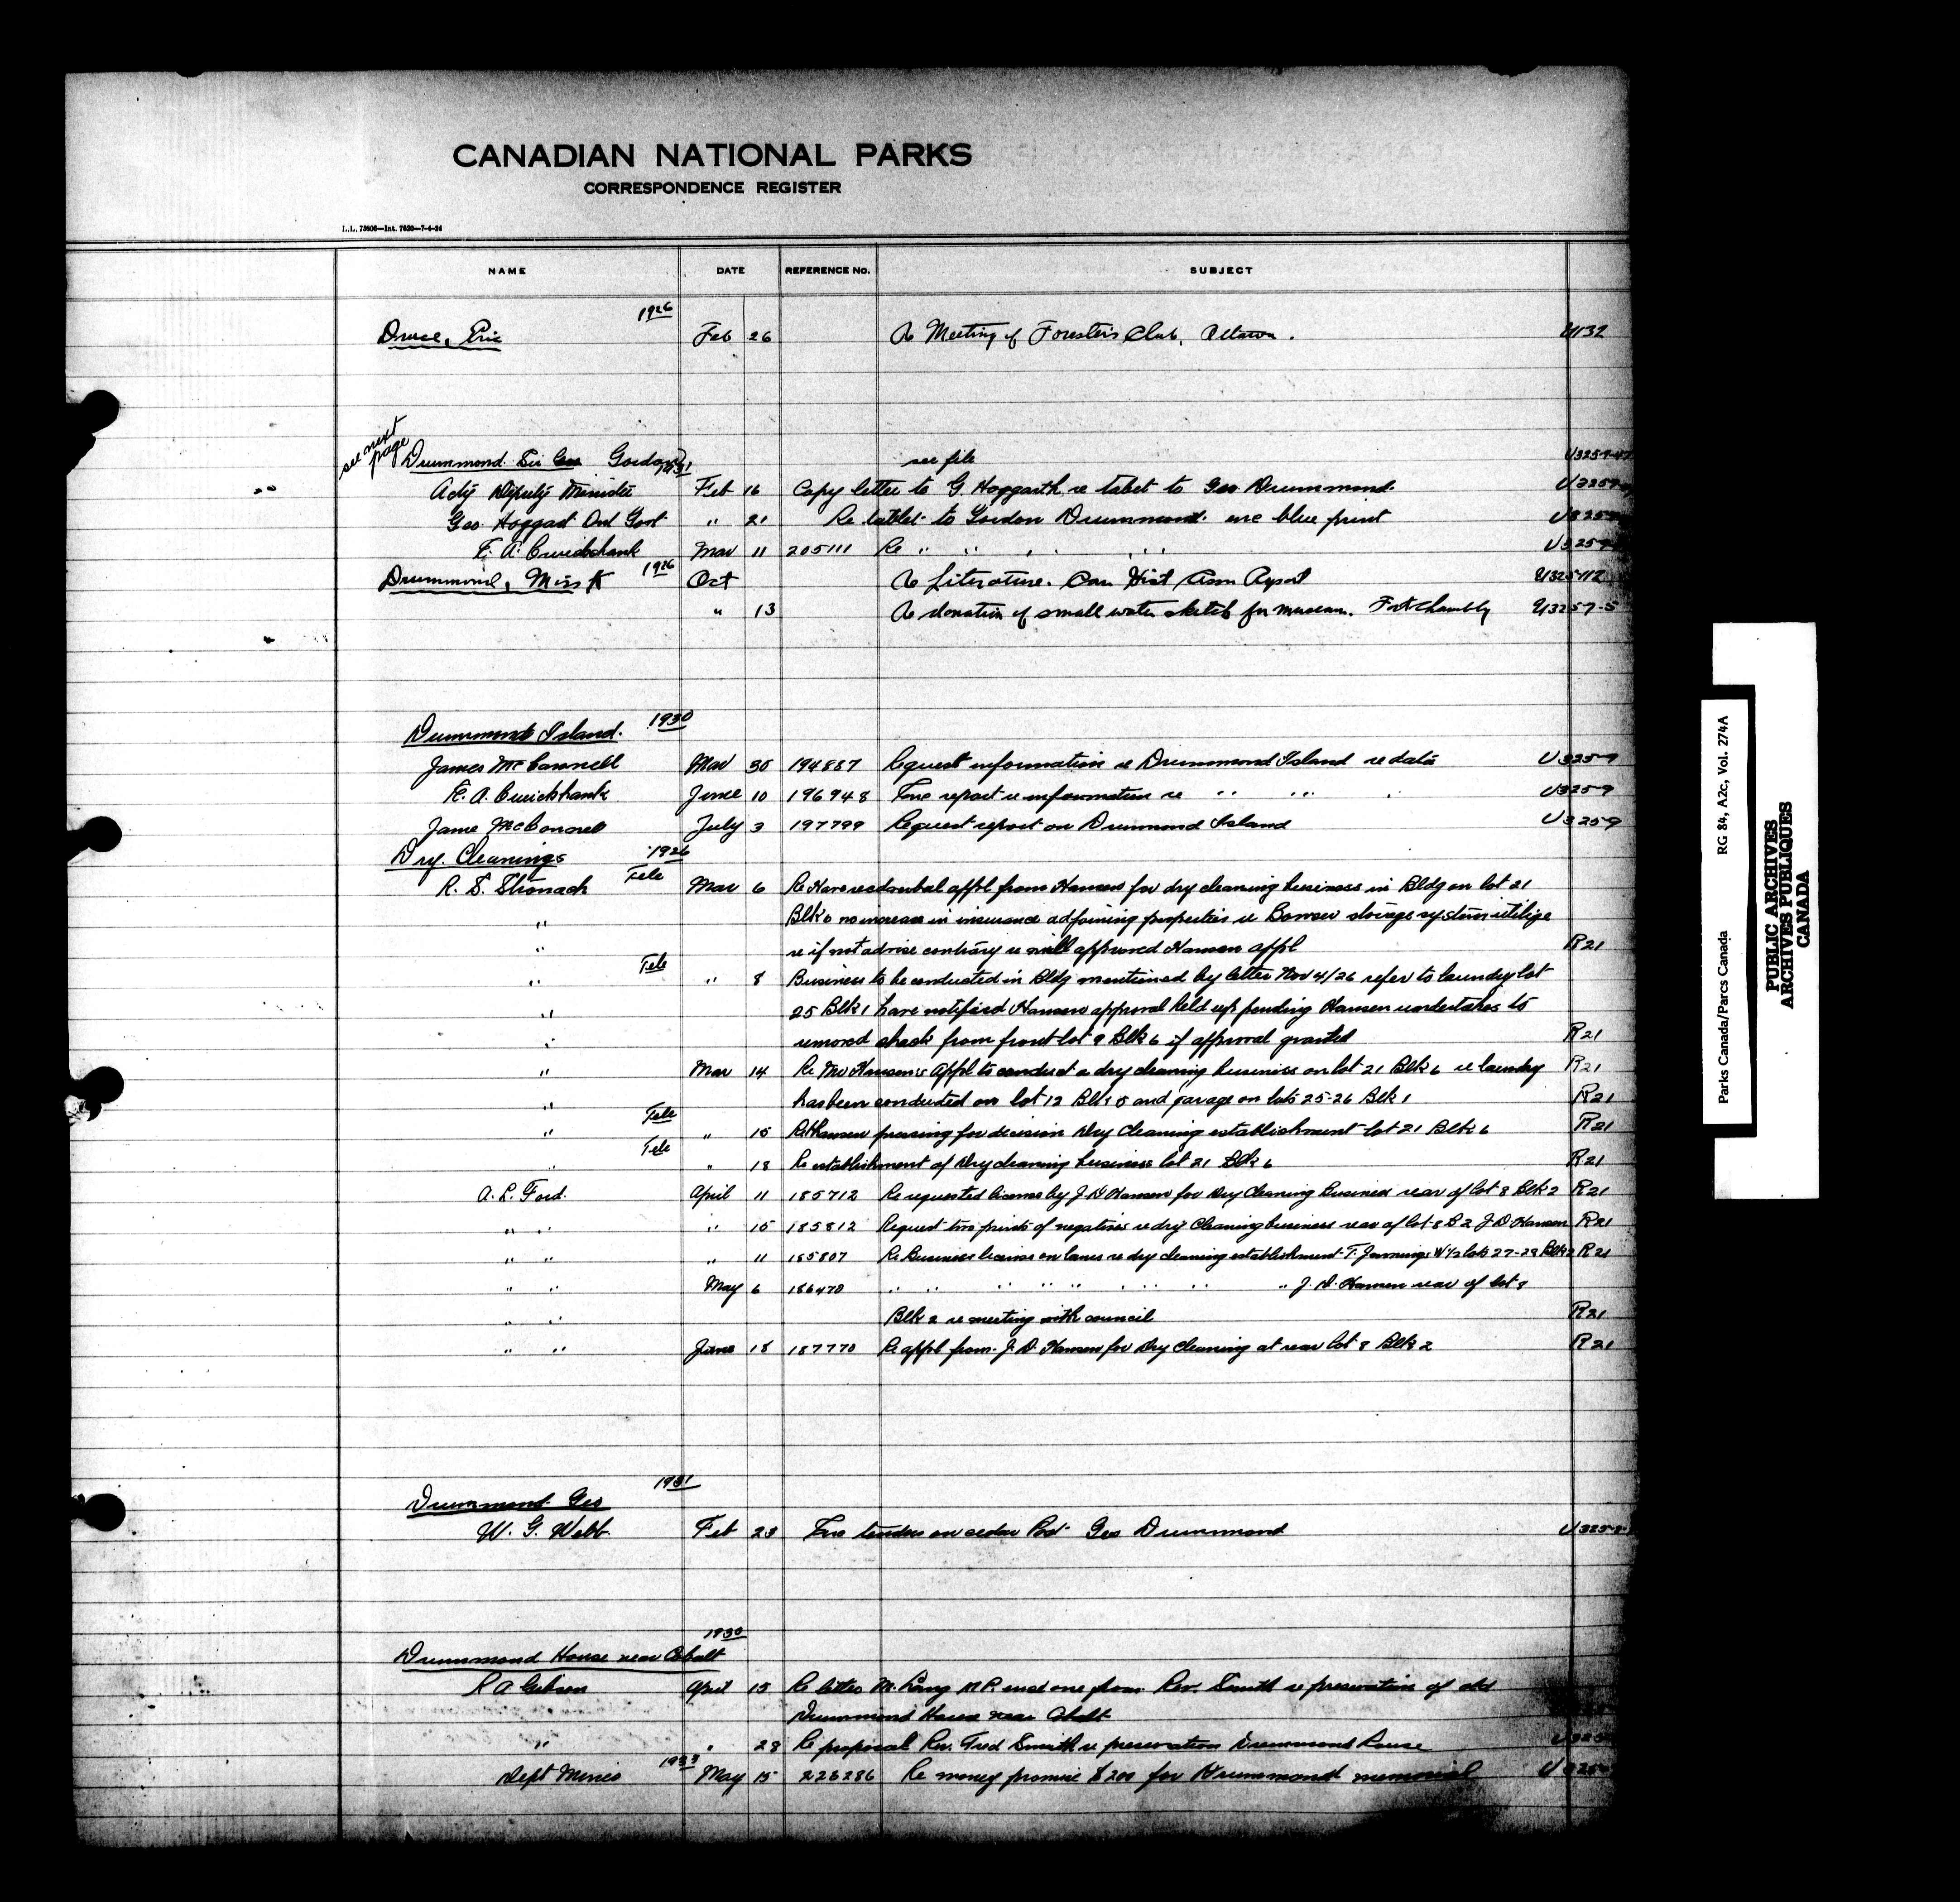 CANADIAN NATIONAL PARKS
CORRESPONDENCE REGISTER
L.L. 75806—Int. 7620—7-4-24
NAME DATE REFERENCE No. SUBJECT
1926
Druce, Eric Feb 26 Re Meeting of Foresters Club, Ottawa. U132
see next page
Drummond Sir Geo Gordon 1931 see file U325-9-47
Actg Deputy Minister Feb 16 Copy letter to G. Hoggarth re tablet to Geo Drummond U325-9
Geo. Hoggart Ont Govt " 21 Re tablet to Gordon Drummond. enc blue print U325-9
E. A. Cruickshank Mar 11 205111 Re " " " " U325-9
Drummond, Miss K 1926 Oct Re Literature. Can Hist Assn Report U325-112
" 13 Re donation of small water sketch for museum. Fort Chambly U325-7-5
Drummond Island. 1930
James McConnell Mar 30 194887 Request information re Drummond Island re data U325-9
E. A. Cruickshank June 10 196948 Enc report re information re " " " U325-9
Jame McConnell July 3 197799 Request report on Drummond Island U325-9
Dry. Cleanings 1926
R. S. Stronach Tele Mar 6 Re Have recd verbal appl from Hansen for dry cleaning business in Bldg on lot 21
" Blk 6 no increase in insurance adjoining properties re Bowser storage system utilize
" re if not advise contrary re will approved Hansen appl R21
" Tele " 8 Business to be conducted in Bldg mentioned by letter Nov 4/26 refer to laundry lot
" 25 Blk 1 have notified Hansen approval held up pending Hansen undertakes to
" removed shack from front lot 9 Blk 6 if approval granted R21
" Mar 14 Re Mr Hansen's Appl to conduct a dry cleaning business on lot 21 Blk 6 re laundry R21
" has been conducted on lot 12 Blk 5 and garage on lots 25-26 Blk 1 R21
" Tele " 15 Re Hansen pressing for decision Dry Cleaning establishment lot 21 Blk 6 R21
" Tele " 18 Re establishment of Dry cleaning business lot 21 Blk 6 R21
A. L. Ford. April 11 185712 Re requested license by J. D. Hansen for Dry Cleaning Business rear of lot 8 Blk 2 R21
" " " 15 185812 Request two prints of negatives re dry Cleaning business rear of lot 8 B 2 J. D. Hansen R21
" " " 11 185807 Re Business license on lanes re dry cleaning establishment T. Jennings W½ lots 27-28 Blk 2 R21
" " May 6 186470 " " " " " " " " " J. D. Hansen rear of lot 8
" " Blk 2 re meeting with council R21
" " June 18 187770 Re appl from J. D. Hansen for Dry Cleaning at rear lot 8 Blk 2 R21
Drummond Geo 1931
W. G. Webb. Feb 23 Enc tenders on cedar Post Geo Drummond U325-9
1930
Drummond House near Cobalt
R A Gibson April 15 Re letter M. Lang M.P. and one from Rev. Smith re preservation of old
Drummond House near Cobalt
" " 28 Re proposal Rev. Fred Smith re preservation Drummond House U325
Dept Mines 1933 May 15 226286 Re money promise $200 for Drummond memorial U325
Parks Canada/Parcs Canada RG 84, A2c, Vol. 274A
PUBLIC ARCHIVES
ARCHIVES PUBLIQUES
CANADA